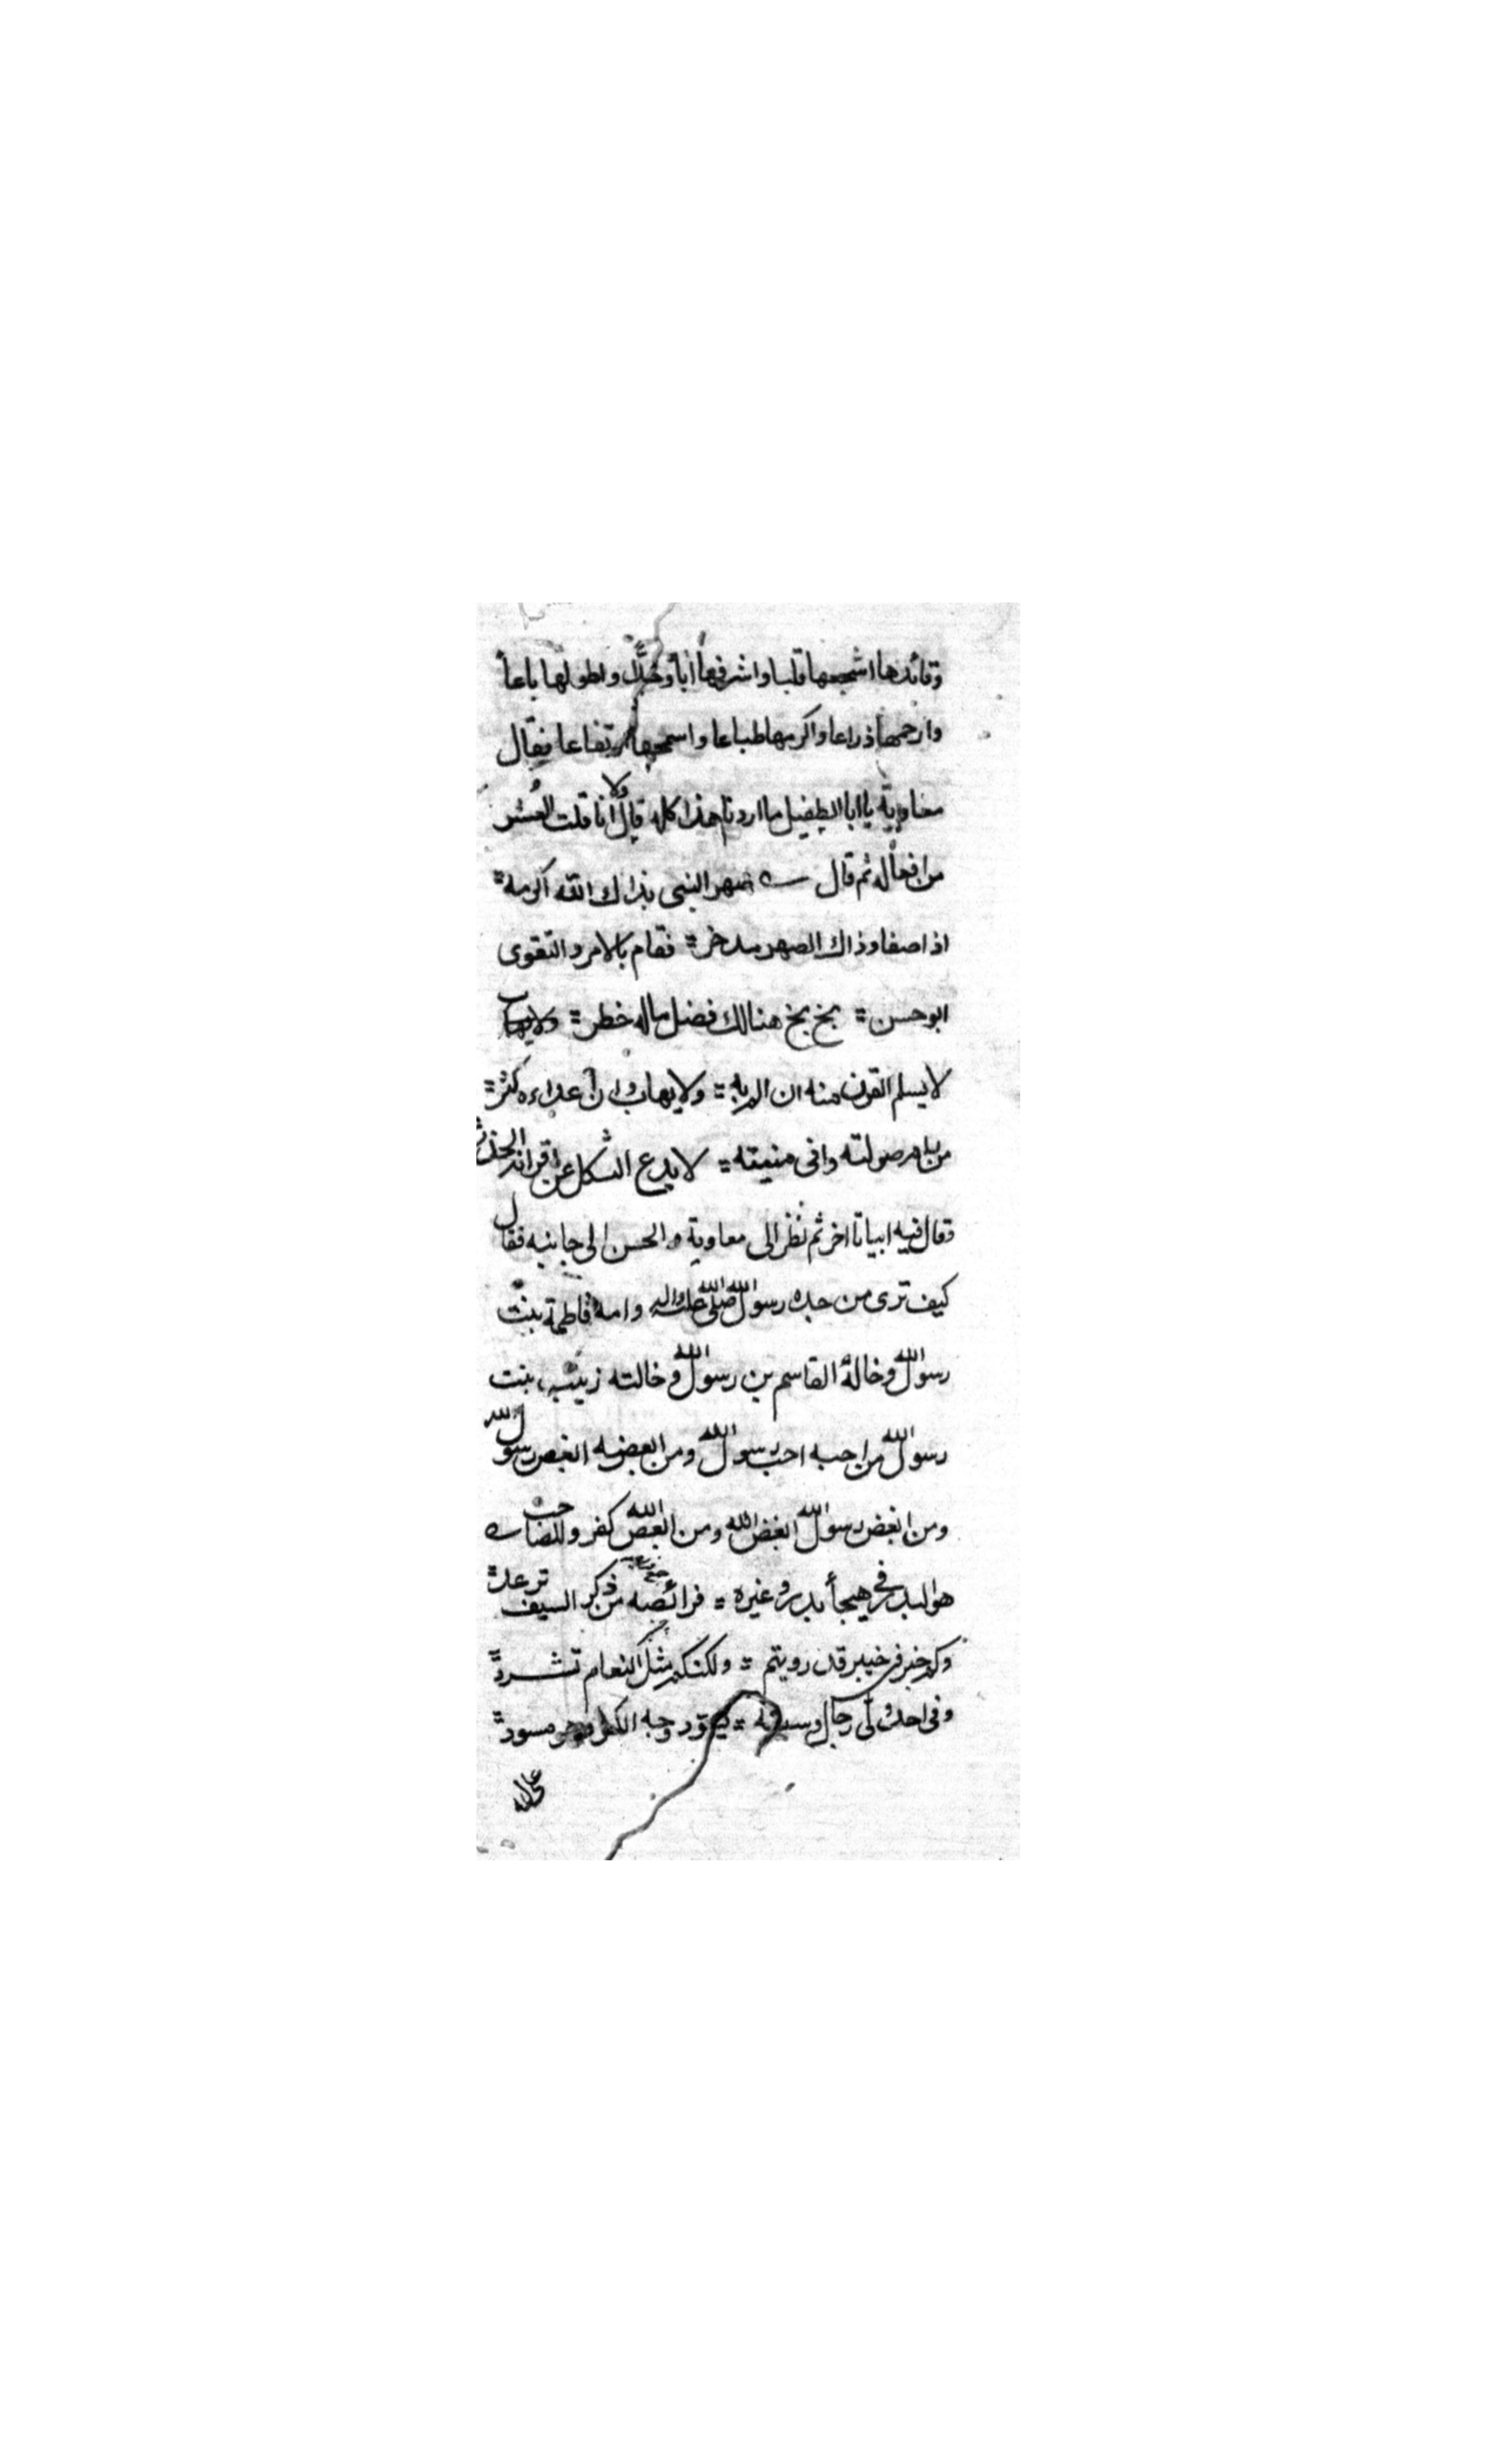 وقائدها اشجعها قلبا واشرفها أبا وجدا واطولها باعا
وارحمها ذراعا واكرمها طباعا واسمحها ارتفاعا فقال
معاوية يا ابا الطفيل ما اردنا هذا كله قال ولا انا قلت العُشر
من افعاله ثم قال صهر النبي بذاك الله اكرمه
اذ اصفا وذاك الصهر مدخر فقام بالامر والتقوى
ابو حسن بخ بخ هنالك فضل ماله خطر ولا يهاب
لا يسلم القرن منه ان الم به ولا يهاب وان أعداءه كثر
من رام صولته وافى منيته لا يدع الثكل عن اقرانه الحذر
وقال فيه ابياتا اخر ثم نظر الى معاوية والحسن الى جانبه فقال
كيف ترى من جده رسول الله صلى الله عليه واله وامه فاطمة بنت
رسول الله وخاله القاسم بن رسول الله وخالته زينب بنت
رسول الله من احبه احب رسول الله ومن ابغضه ابغض رسول الله
ومن ابغض رسول الله ابغض الله ومن ابغض الله كفر وللصاحب
هو البدر في هيجأ بدر وغيره فرائصه من ذكر السيف ترعد
وكم خبر في خيبر قد رويتم ولكنكم مثل النعام تشرد
وفى احد ولى رجال وسيفه يسود وجه الكفر وهو مسود